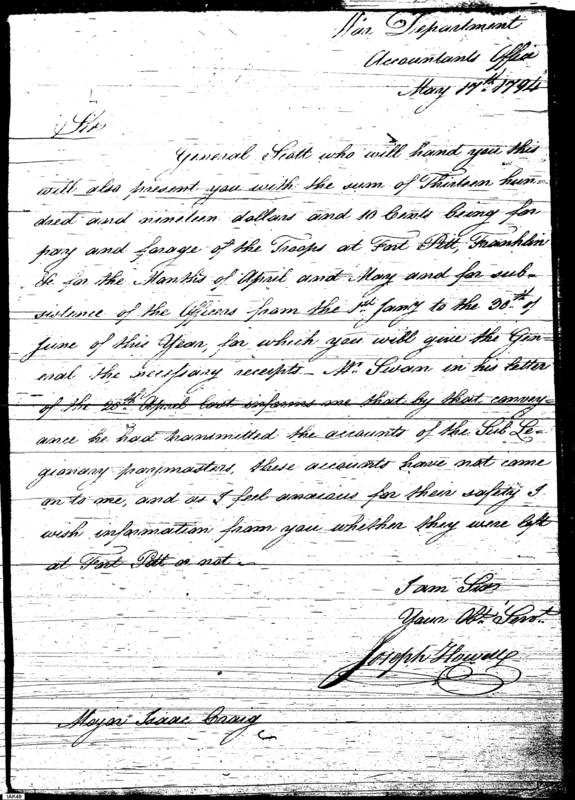 War Department
Accountants Office
May 17th. 1794
Sir
General Scott who will hand you this
will also present you with the sum of Thirteen hun-
dred and nineteen dollars and 10 Cents being for
pay and forage of the Troops at Fort Pitt, Franklin
&c for the Months of April and May and for sub-
sistence of the Officers from the 1st Jany to the 30th of
June of this Year, for which you will give the Gen-
eral the necessary receipts - Mr. Swan in his letter
of the 20th April last informs me that by that convey-
ance he had transmitted the accounts of the Sub Le-
gionary paymasters, these accounts have not came
on to me, and as I feel anxious for their safety I
wish information from you whether they were left
at Fort Pitt or not -
I am Sir
Your Obt. Servt.
Joseph Howell
Major Isaac Craig
IAK49